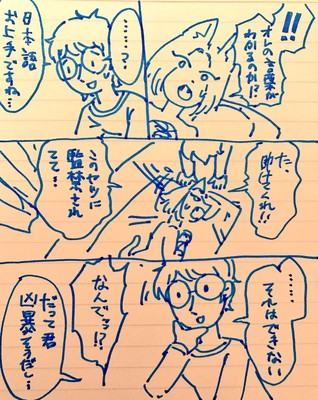 !!
オレの言葉が
わかるのか!?
……?
日本語
お上手ですね…
た、
助けてくれ!!
このヤツに
監禁され
てて…
……
それはできない
なんでっ!?
だって君
凶暴そうだし…